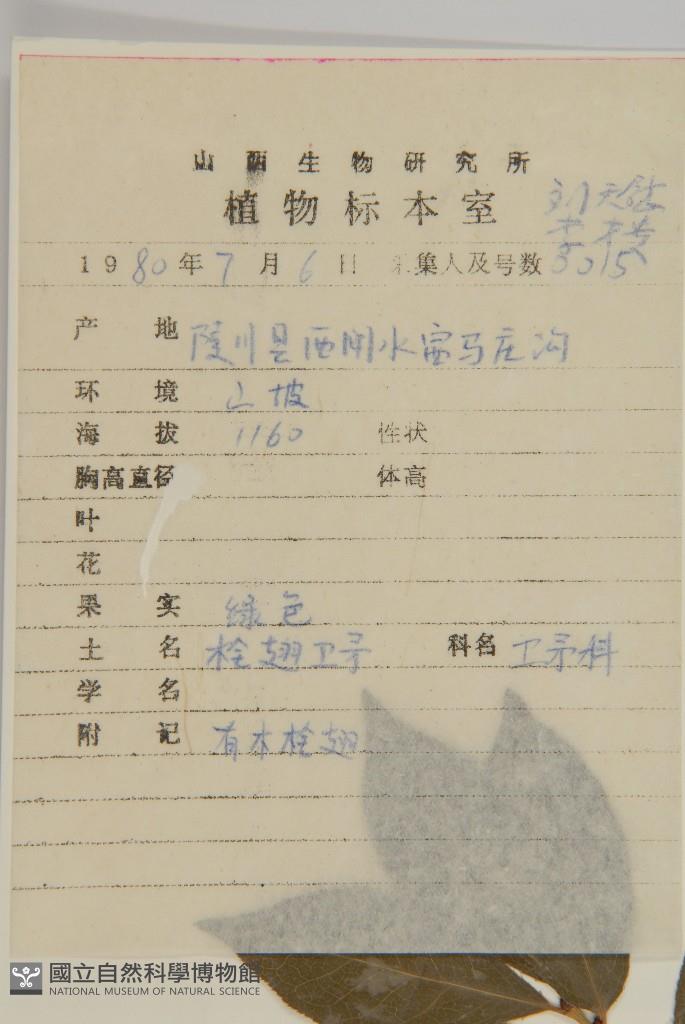 山西生物研究所
植物标本室
刘天慰
李
1980年7月6日 采集人及号数 3015
产地 陵川县西闸水窑马庄沟
环境 山坡
海拔 1160 性状
胸高直径 体高
叶
花
果实 绿色
土名 栓翅卫矛 科名 卫矛科
学名
附记 有木栓翅
國立自然科學博物館
NATIONAL MUSEUM OF NATURAL SCIENCE